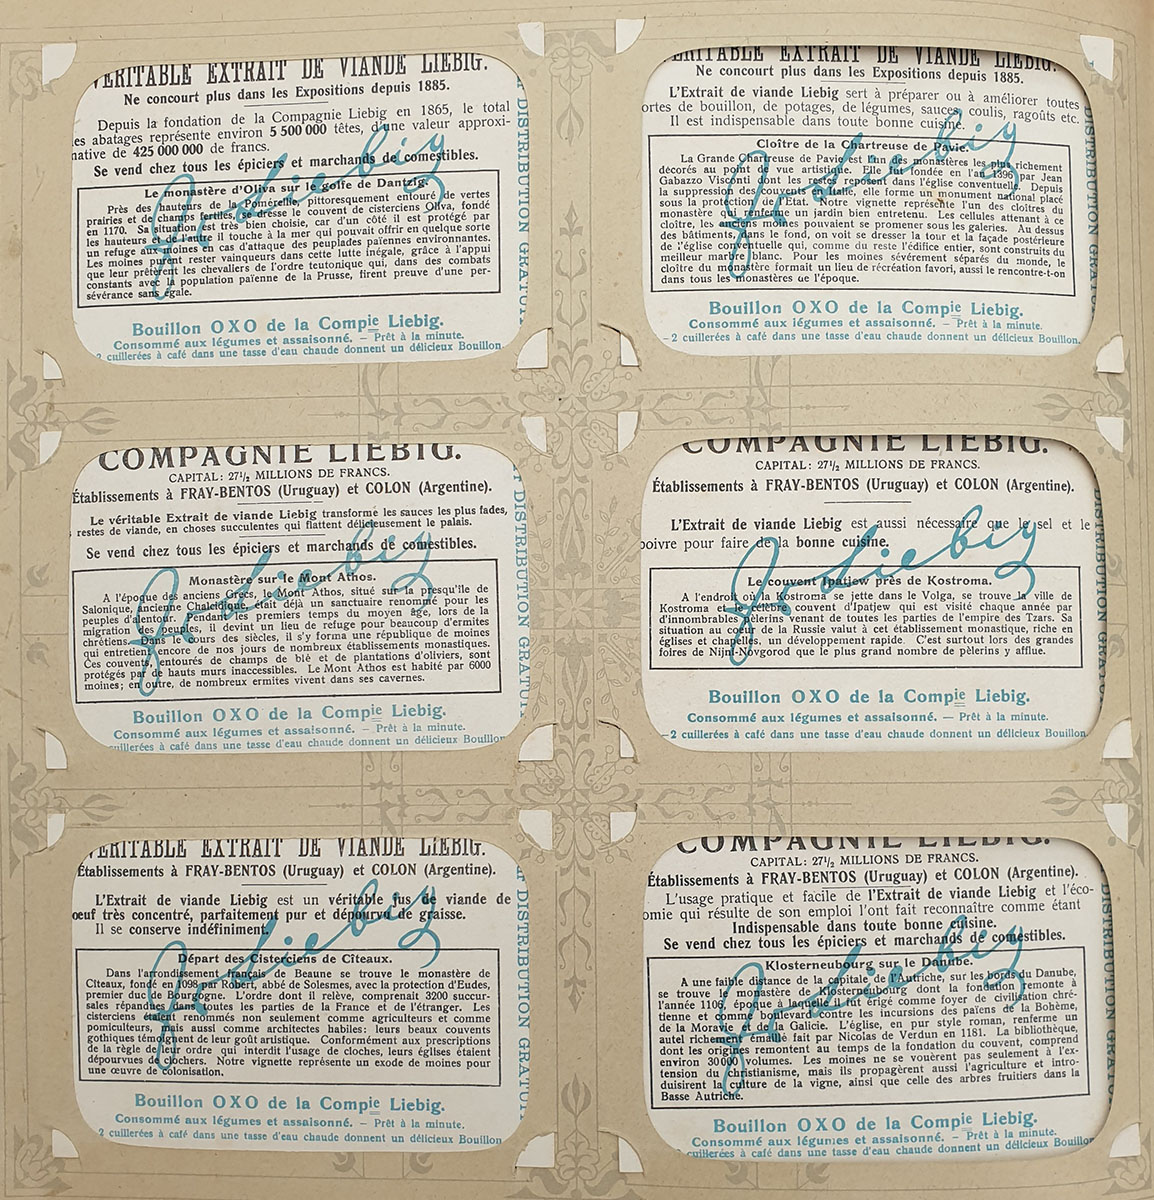 VÉRITABLE EXTRAIT DE VIANDE LIEBIG.
Ne concourt plus dans les Expositions depuis 1885.
Depuis la fondation de la Compagnie Liebig en 1865, le total
es abatages représente environ 5 500 000 têtes, d'une valeur approxi-
native de 425 000 000 de francs.
Se vend chez tous les épiciers et marchands de comestibles.
Le monastère d'Oliva sur le golfe de Dantzig.
Près des hauteurs de la Pomérellie, pittoresquement entouré de vertes
prairies et de champs fertiles, se dresse le couvent de cisterciens Oliva, fondé
en 1170. Sa situation est très bien choisie, car d'un côté il est protégé par
les hauteurs et de l'autre il touche à la mer qui pouvait offrir en quelque sorte
un refuge aux moines en cas d'attaque des peuplades païennes environnantes.
Les moines purent rester vainqueurs dans cette lutte inégale, grâce à l'appui
que leur prêtèrent les chevaliers de l'ordre teutonique qui, dans des combats
constants avec la population païenne de la Prusse, firent preuve d'une per-
sévérance sans égale.
Bouillon OXO de la Compie Liebig.
Consommé aux légumes et assaisonné. — Prêt à la minute.
2 cuillerées à café dans une tasse d'eau chaude donnent un délicieux Bouillon.
DISTRIBUTION GRATUI
JvLiebig
VÉRITABLE EXTRAIT DE VIANDE LIEBIG.
Ne concourt plus dans les Expositions depuis 1885.
L'Extrait de viande Liebig sert à préparer ou à améliorer toutes
ortes de bouillon, de potages, de légumes, sauces, coulis, ragoûts etc.
Il est indispensable dans toute bonne cuisine.
Cloître de la Chartreuse de Pavie.
La Grande Chartreuse de Pavie est l'un des monastères les plus richement
décorés au point de vue artistique. Elle fut fondée en l'an 1396 par Jean
Gabazzo Visconti dont les restes reposent dans l'église conventuelle. Depuis
la suppression des couvents en Italie, elle forme un monument national placé
sous la protection de l'Etat. Notre vignette représente l'un des cloîtres du
monastère qui renferme un jardin bien entretenu. Les cellules attenant à ce
cloître, les anciens moines pouvaient se promener sous les galeries. Au dessus
des bâtiments, dans le fond, on voit se dresser la tour et la façade postérieure
de l'église conventuelle qui, comme du reste l'édifice entier, sont construits du
meilleur marbre blanc. Pour les moines sévérement séparés du monde, le
cloître du monastère formait un lieu de récréation favori, aussi le rencontre-t-on
dans tous les monastères de l'époque.
Bouillon OXO de la Compie Liebig.
Consommé aux légumes et assaisonné. — Prêt à la minute.
–2 cuillerées à café dans une tasse d'eau chaude donnent un délicieux Bouillon.
DISTRIBUTION GRATUI
JvLiebig
COMPAGNIE LIEBIG.
CAPITAL: 27½ MILLIONS DE FRANCS.
Établissements à FRAY-BENTOS (Uruguay) et COLON (Argentine).
Le véritable Extrait de viande Liebig transforme les sauces les plus fades,
restes de viande, en choses succulentes qui flattent délicieusement le palais.
Se vend chez tous les épiciers et marchands de comestibles.
Monastère sur le Mont Athos.
A l'époque des anciens Grecs, le Mont Athos, situé sur la presqu'île de
Salonique, ancienne Chaleidique, était déjà un sanctuaire renommé pour les
peuples d'alentour. Pendant les premiers temps du moyen âge, lors de la
migration des peuples, il devint un lieu de refuge pour beaucoup d'ermites
chrétiens. Dans le cours des siècles, il s'y forma une république de moines
qui entretient encore de nos jours de nombreux établissements monastiques.
Ces couvents, entourés de champs de blé et de plantations d'oliviers, sont
protégés par de hauts murs inaccessibles. Le Mont Athos est habité par 6000
moines; en outre, de nombreux ermites vivent dans ses cavernes.
Bouillon OXO de la Compie Liebig.
Consommé aux légumes et assaisonné. — Prêt à la minute.
cuillerées à café dans une tasse d'eau chaude donnent un délicieux Bouillon
DISTRIBUTION GRATUI
JvLiebig
COMPAGNIE LIEBIG.
CAPITAL: 27½ MILLIONS DE FRANCS.
Établissements à FRAY-BENTOS (Uruguay) et COLON (Argentine).
L'Extrait de viande Liebig est aussi nécessaire que le sel et le
poivre pour faire de la bonne cuisine.
Le couvent Ipatjew près de Kostroma.
A l'endroit où la Kostroma se jette dans le Volga, se trouve la ville de
Kostroma et le célèbre couvent d'Ipatjew qui est visité chaque année par
d'innombrables pèlerins venant de toutes les parties de l'empire des Tzars. Sa
situation au cœur de la Russie valut à cet établissement monastique, riche en
églises et chapelles, un développement rapide. C'est surtout lors des grandes
foires de Nijni-Novgorod que le plus grand nombre de pèlerins y afflue.
Bouillon OXO de la Compie Liebig.
Consommé aux légumes et assaisonné. — Prêt à la minute.
–2 cuillerées à café dans une tasse d'eau chaude donnent un délicieux Bouillon
DISTRIBUTION GRATUI
JvLiebig
VÉRITABLE EXTRAIT DE VIANDE LIEBIG.
Établissements à FRAY-BENTOS (Uruguay) et COLON (Argentine).
L'Extrait de viande Liebig est un véritable jus de viande de
œuf très concentré, parfaitement pur et dépourvu de graisse.
Il se conserve indéfiniment.
Départ des Cisterciens de Cîteaux.
Dans l'arrondissement français de Beaune se trouve le monastère de
Cîteaux, fondé en 1098 par Robert, abbé de Solesmes, avec la protection d'Eudes,
premier duc de Bourgogne. L'ordre dont il relève, comprenait 3200 succur-
sales répandues dans toutes les parties de la France et de l'étranger. Les
cisterciens étaient renommés non seulement comme agriculteurs et comme
pomiculteurs, mais aussi comme architectes habiles: leurs beaux couvents
gothiques témoignent de leur goût artistique. Conformément aux prescriptions
de la règle de leur ordre qui interdit l'usage de cloches, leurs églises étaient
dépourvues de clochers. Notre vignette représente un exode de moines pour
une œuvre de colonisation.
Bouillon OXO de la Compie Liebig.
Consommé aux légumes et assaisonné. — Prêt à la minute.
2 cuillerées à café dans une tasse d'eau chaude donnent un délicieux Bouillon
DISTRIBUTION GRATUI
JvLiebig
COMPAGNIE LIEBIG.
CAPITAL: 27½ MILLIONS DE FRANCS.
Établissements à FRAY-BENTOS (Uruguay) et COLON (Argentine).
L'usage pratique et facile de l'Extrait de viande Liebig et l'éco-
omie qui résulte de son emploi l'ont fait reconnaître comme étant
Indispensable dans toute bonne cuisine.
Se vend chez tous les épiciers et marchands de comestibles.
Klosterneubourg sur le Danube.
A une faible distance de la capitale de l'Autriche, sur les bords du Danube,
se trouve le monastère de Klosterneubourg dont la fondation remonte à
l'année 1106, époque à laquelle il fut érigé comme foyer de civilisation chré-
tienne et comme boulevard contre les incursions des païens de la Bohême,
de la Moravie et de la Galicie. L'église, en pur style roman, renferme un
autel richement émaillé fait par Nicolas de Verdun en 1181. La bibliothèque,
dont les origines remontent au temps de la fondation du couvent, comprend
environ 30 000 volumes. Les moines ne se vouèrent pas seulement à l'ex-
tension du christianisme, mais ils propagèrent aussi l'agriculture et intro-
duisirent la culture de la vigne, ainsi que celle des arbres fruitiers dans la
Basse Autriche.
Bouillon OXO de la Compie Liebig.
Consommé aux légumes et assaisonné. — Prêt à la minute.
cuillerées à café dans une tasse d'eau chaude donnent un délicieux Bouillon
DISTRIBUTION GRATUI
JvLiebig